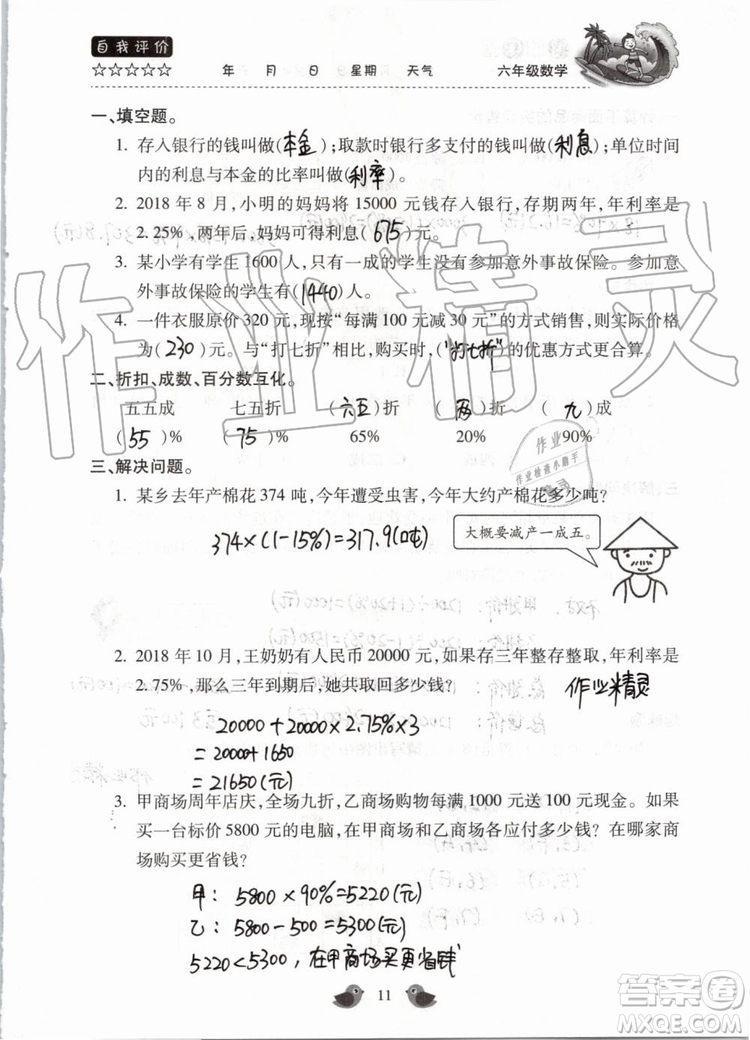 自我评价
☆☆☆☆☆ 年 月 日 星期 天气 六年级数学
一、填空题。
1. 存入银行的钱叫做(本金);取款时银行多支付的钱叫做(利息);单位时间
内的利息与本金的比率叫做(利率)。
2. 2018 年 8 月,小明的妈妈将 15000 元钱存入银行,存期两年,年利率是
2.25%,两年后,妈妈可得利息(675)元。
3. 某小学有学生 1600 人,只有一成的学生没有参加意外事故保险。参加意
外事故保险的学生有(1440)人。
4. 一件衣服原价 320 元,现按“每满 100 元减 30 元”的方式销售,则实际价格
为(230)元。与“打七折”相比,购买时,(“打七折”)的优惠方式更合算。
二、折扣、成数、百分数互化。
五五成 七五折 (六五)折 (两)折 (九)成
(55)% (75)% 65% 20% 90%
三、解决问题。
1. 某乡去年产棉花 374 吨,今年遭受虫害,今年大约产棉花多少吨?
大概要减产一成五。
374×(1-15%)=317.9(吨)
2. 2018 年 10 月,王奶奶有人民币 20000 元,如果存三年整存整取,年利率是
2.75%,那么三年到期后,她共取回多少钱?
作业精灵
20000+20000×2.75%×3
=20000+1650
=21650(元)
3. 甲商场周年店庆,全场九折,乙商场购物每满 1000 元送 100 元现金。如果
买一台标价 5800 元的电脑,在甲商场和乙商场各应付多少钱?在哪家商
场购买更省钱?
甲:5800×90%=5220(元)
乙:5800-500=5300(元)
5220<5300,在甲商场买更省钱
11
作业精灵
作业
作业检查小助手
精灵
答案圈
MXQE.COM